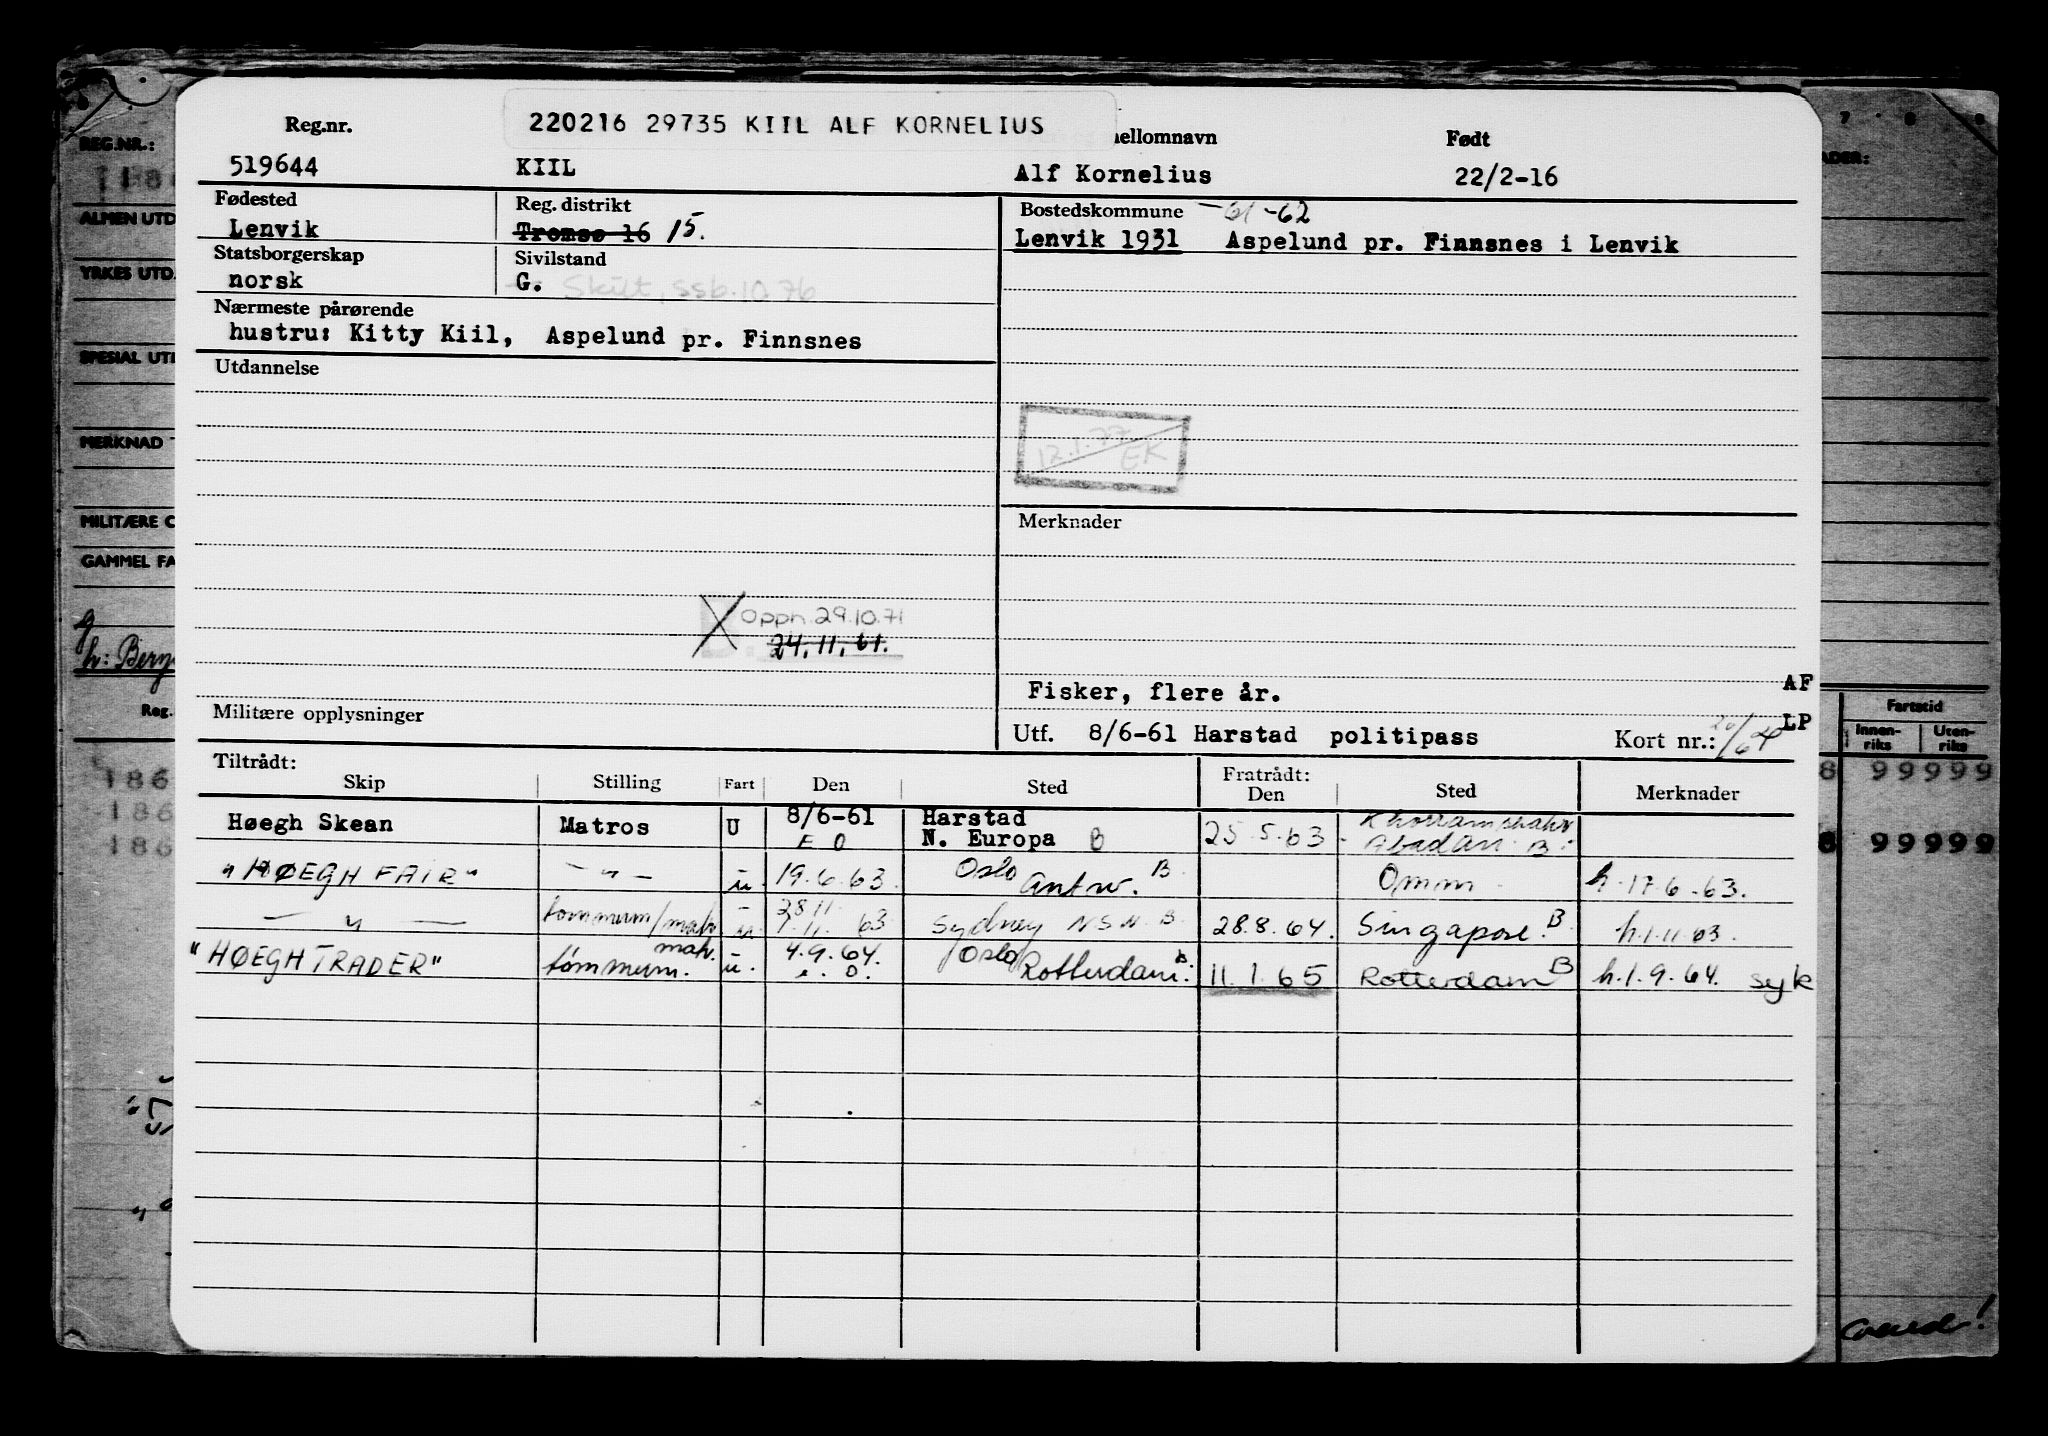 220216 29735 KIIL ALF KORNELIUS
Reg.nr.
ellomnavn
Født
519644
KIIL
Alf Kornelius
22/2-16
Fødested
Reg. distrikt
Bostedskommune -62
Lenvik
Tromsø 16 15.
Lenvik 1931 Aspelund pr. Finnsnes i Lenvik
Statsborgerskap
Sivilstand
norsk
G. Skilt, ssb. 10.76
Nærmeste pårørende
hustru: Kitty Kiil, Aspelund pr. Finnsnes
Utdannelse
17.1.77
EK
Merknader
Oppn. 29.10.71
24.11.61.
Fisker, flere år.
AF
Militære opplysninger
LP
Utf. 8/6-61 Harstad politipass
Kort nr.:
Tiltrådt:
Skip Stilling Fart Den Sted
Fratrådt:
Den Sted Merknader
Høegh Skean Matros U 8/6-61 Harstad
E O N. Europa B 25.5.63 Khorramshahr
Abadan B.
"HØEGH FAIR" — " — u. 19.6.63. Oslo
Antw. B. Omm. h. 17.6.63.
— " — tømmerm/matr. u. 28.11.
1.11.63 Sydney N.S.W. B. 28.8.64. Singapore. B. h.1.11.63.
"HØEGH TRADER" matr.
tømmerm. u. 4.9.64.
e.o. Oslo
Rotterdam. B. 11.1.65 Rotterdam B h.1.9.64. syk
REG.NR.:
ALMEN UTD
YRKES UTD.
SPESIAL UTD
MERKNAD
MILITÆRE
GAMMEL FA
Reg.
186
186
186
Fartstid
Innen-
riks
Uten-
riks
8 99999
8 99999